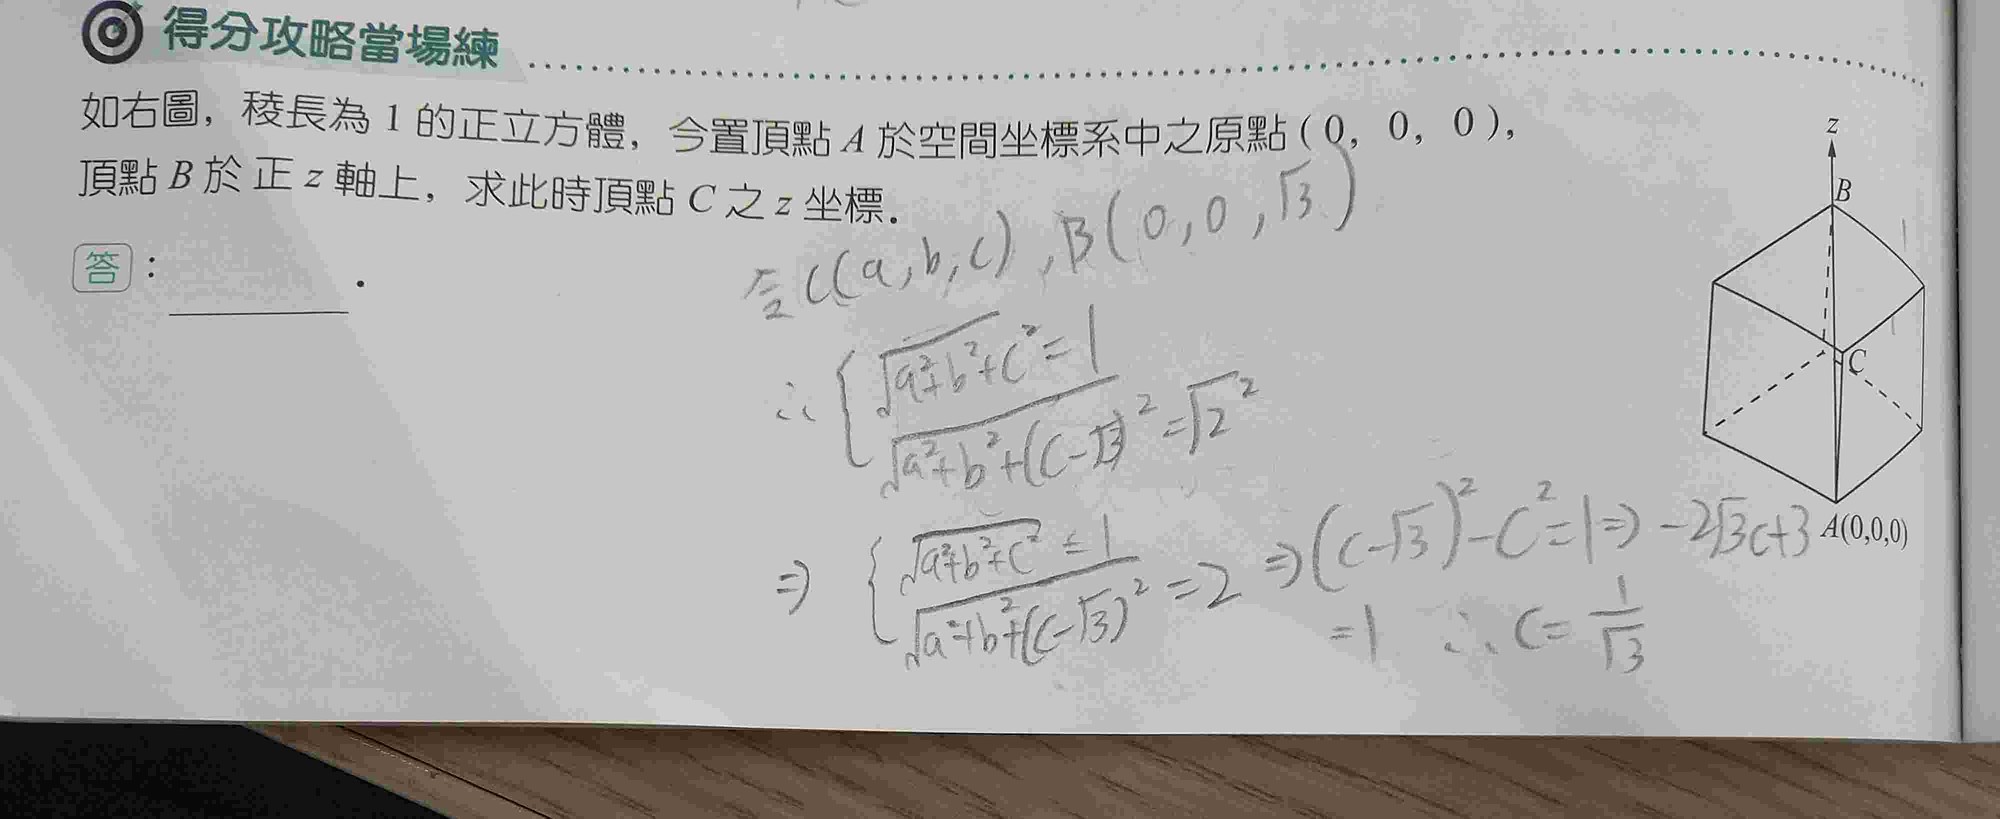 得分攻略當場練
如右圖，稜長為 1 的正立方體，今置頂點 A 於空間坐標系中之原點 ( 0， 0， 0 )，
頂點 B 於 正 z 軸上，求此時頂點 C 之 z 坐標．
答：
．
令C(a,b,c),B(0,0,√3)
∴ { √a²+b²+c² = 1
√a²+b²+(c-√3)² = √2²
⇒ { √a²+b²+c² = 1
√a²+b²+(c-√3)² = 2 ⇒ (c-√3)² - c² = 1 ⇒ -2√3c+3
= 1 ∴ c = 1/√3
z
B
1
1
C
A(0,0,0)